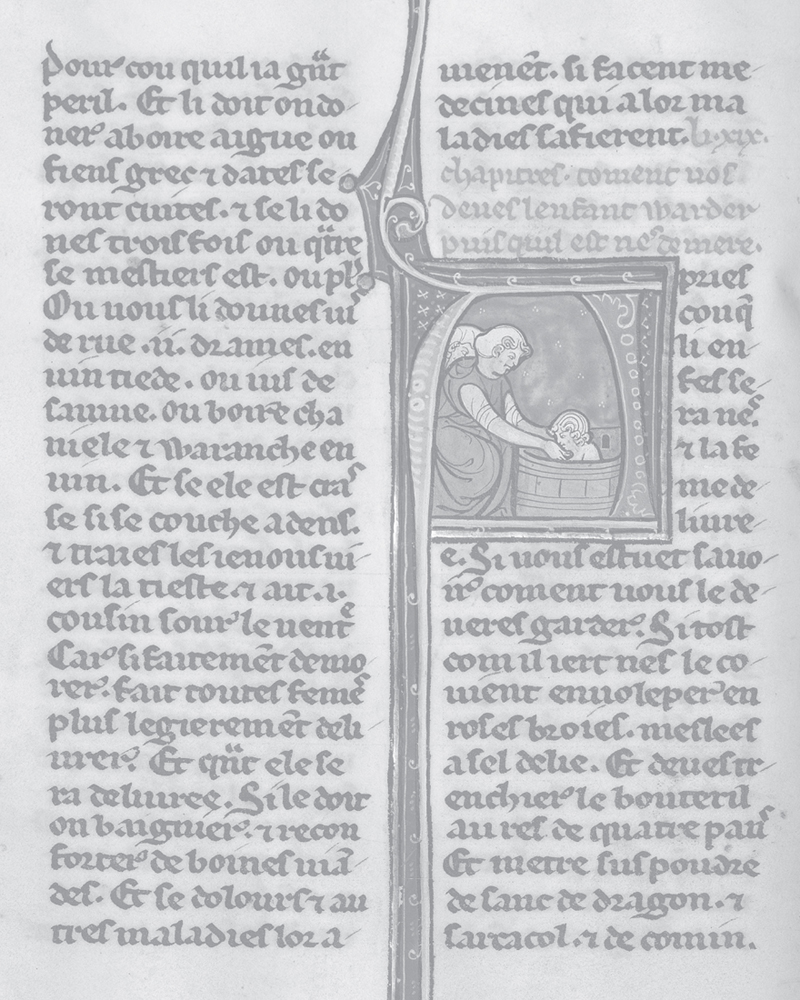 Pour cou quil ia gñt
peril. Et li doit on do-
ner aboire aigue ou
fiens grec ⁊ dates se-
ront cuites. ⁊ se li do
nes trois fois ou qt̃re
se mestiers est. ou pl9
Ou uous li dounes ius
de rue .ii. dramies. en
uin tiede. ou ius de
sauine. ou boire cha
miele ⁊ waranche en
uin. Et se ele est cras
se si se couche adens.
⁊ traies les ienous ui-
ers la tieste. ⁊ ait .i.
cousin sour le uentre
Car si faitement demo-
rer. fait toutes femes
plus legierement deli-
urer. Et qñt ele se
ra deliuree. Si le doit
on baignier. ⁊ recon
forter de boines uiã-
des. Et se dolours ⁊ au
tres maladies lor a-
uienẽt. si facent me-
decines qui alor ma
ladies safierent. li .xix.
chapitres. coment uos
deues lenfant warder
puis quil est nes de mere.
pries
couq̃
li en-
fes se-
ra nes
⁊ la fe
me de
liure-
e. Si uous estuet sauo-
ir coment uous le de-
ueres garder. Si tost
com il iert nes le co-
uient enuoleper en
roses broies. meslees
a sel delie. Et deues tr-
enchier le bouteril
au res de quatre paus
Et metre sus poudre
de sanc de dragon. ⁊
sarcacol. ⁊ de comin.